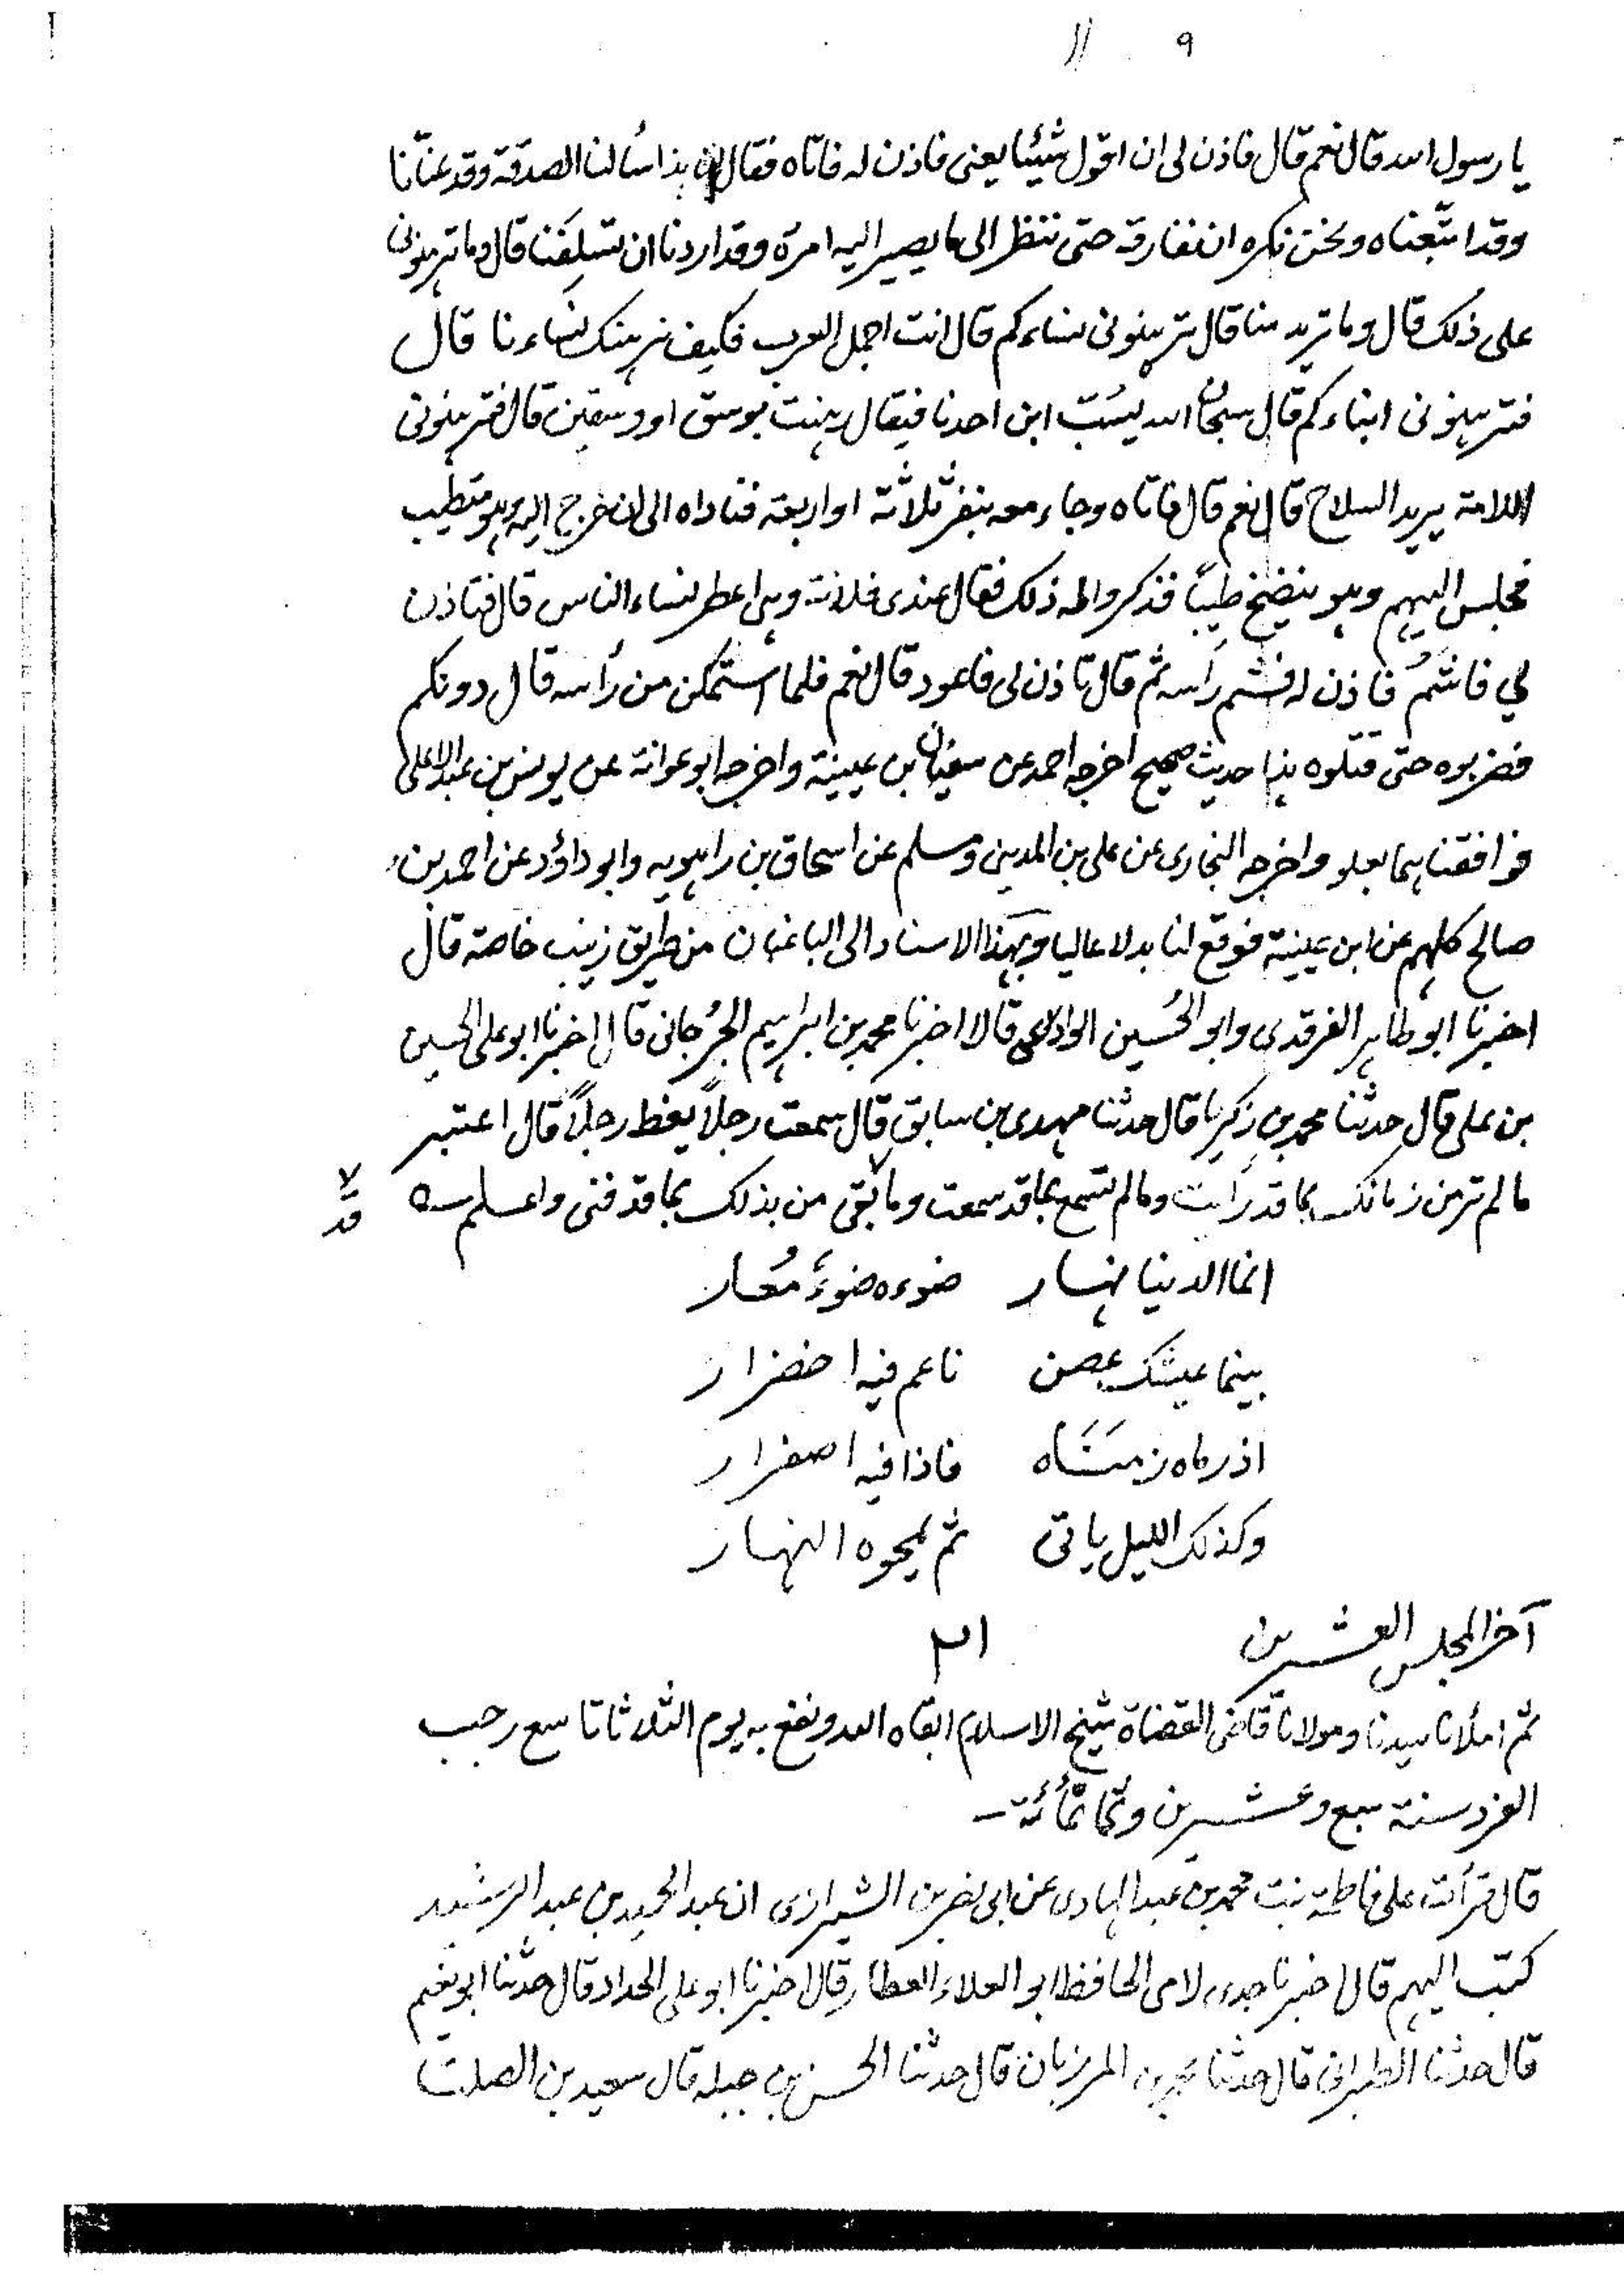 ٩ 11
يا رسول الله قال نعم قال فاذن لى ان اقول شيئا يعنى فاذن له فاتاه فقال ان هذا سألنا الصدقة وقد عنّانا
وقد اتبّعناه ونحن نكره ان نفارقه حتى ننظر الى ما يصير اليه امره وقد اردنا ان تسلفنا قال وما ترهنونى
على ذلك قال وما تريد منا قال ترهنونى نساءكم قال انت اجمل العرب فكيف نرهنك نساءنا قال
فترهنونى ابناءكم قال سبحان الله يسُبّ ابن احدنا فيقال رهنت بوسق او وسقين قال فترهنونى
اللامة يريد السلاح قال نعم قال فاتاه وجاء معه بنفر ثلاثة او اربعة فناداه الى ان خرج اليه وهو متطيب
فجلس اليهم وهو ينضخ طيبًا فذكروا له ذلك فقال عندى فلانة وهى اعطر نساء الناس قال فتاذن
لي فاشمُ فاذن له فشم رأسه ثم قال تاذن لى فاعود قال نعم فلما استمكن من رأسه قال دونكم
فضربوه حتى قتلوه هذا حديث صحيح اخرجه احمد عن سفيان بن عيينة واخرجه ابو عوانة عن يونس بن عبد الاعلى
فوافقناهما بعلو واخرجه البخارى عن على بن المدينى ومسلم عن اسحاق بن راهويه وابو داؤد عن احمد بن
صالح كلهم عن ابن عيينة فوقع لنا بدلا عاليا وبهذا الاسناد الى الباغبان من طريق زينب خاصة قال
اخبرنا ابو طاهر الغرقدى وابو الحُسين قالا اخبرنا محمد بن ابراهيم الجُرجانى قال اخبرنا ابو على الحسين
بن على قال حدثنا محمد بن زكريا قال حدثنا مهدى بن سابق قال سمعت رجلاً يعظ رجلاً قال اعتبر
ما لم تر من زمانك بما قد رأيت وما لم تسمع بما قد سمعت وما بقى من بذلك بما قد فنى واعلم
قد
انما الدنيا نهار ضوءه ضوءٌ مُعار
بينما عيشك غصن ناعم فيه اخضرار
اذ رماه زمناه فاذا فيه اصفرار
وكذلك الليل ياتى ثم يمحوه النهار
آخر المجلس العشرين ٢١
ثم املانا سيدنا ومولانا قاضى القضاة شيخ الاسلام ابقاه الله ونفع به يوم الثلاثا تاسع رجب
الفرد سنة سبع وعشرين وثمانمائة -
قال قرأت على فاطمة بنت محمد بن عبد الهادى عن ابى نصر بن الشيرازى ان عبد الحميد بن عبد الرشيد
كتب اليهم قال اخبرنا جدى لامى الحافظ ابو العلاء العطار قال اخبرنا ابو على الحداد قال حدثنا ابو نعيم
قال حدثنا الطبرانى قال حدثنا محمد بن المرزبان قال حدثنا الحسن بن جبله قال سعيد بن الصلت